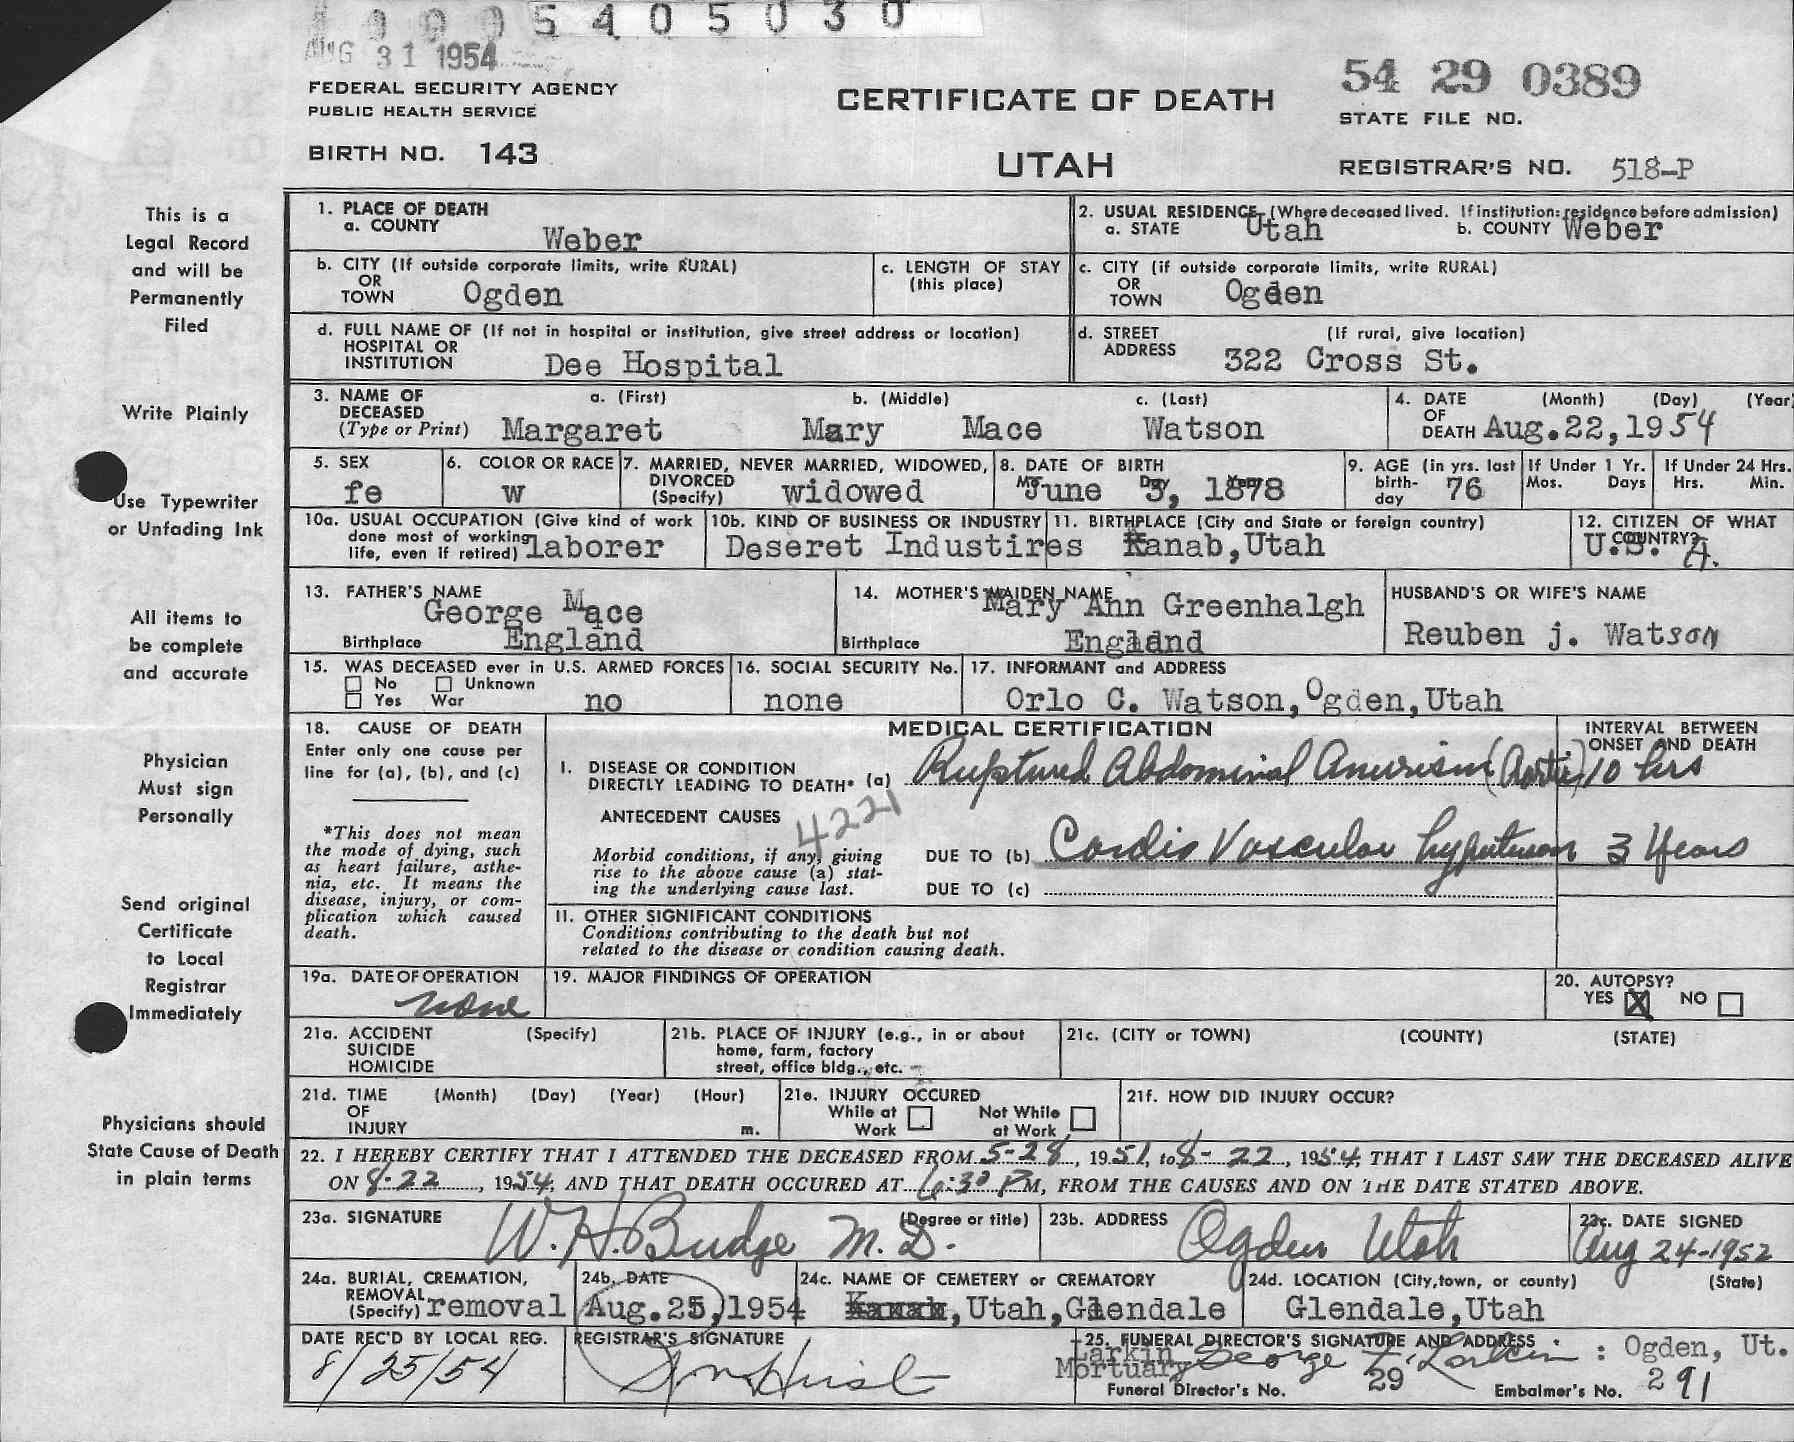 5 4 0 5 0 3 0
AUG 31 1954
FEDERAL SECURITY AGENCY
PUBLIC HEALTH SERVICE
BIRTH NO. 143
CERTIFICATE OF DEATH
UTAH
54 29 0389
STATE FILE NO.
REGISTRAR'S NO. 518-P
This is a
Legal Record
and will be
Permanently
Filed
Write Plainly
Use Typewriter
or Unfading Ink
All items to
be complete
and accurate
Physician
Must sign
Personally
Send original
Certificate
to Local
Registrar
Immediately
Physicians should
State Cause of Death
in plain terms
1. PLACE OF DEATH
a. COUNTY
Weber
2. USUAL RESIDENCE (Where deceased lived. If institution: residence before admission)
a. STATE Utah b. COUNTY Weber
b. CITY (If outside corporate limits, write RURAL)
OR
TOWN Ogden
c. LENGTH OF STAY
(this place)
c. CITY (if outside corporate limits, write RURAL)
OR
TOWN Ogden
d. FULL NAME OF (If not in hospital or institution, give street address or location)
HOSPITAL OR
INSTITUTION Dee Hospital
d. STREET (If rural, give location)
ADDRESS 322 Cross St.
3. NAME OF a. (First) b. (Middle) c. (Last)
DECEASED
(Type or Print) Margaret Mary Mace Watson
4. DATE (Month) (Day) (Year)
OF
DEATH Aug. 22, 1954
5. SEX
fe
6. COLOR OR RACE
w
7. MARRIED, NEVER MARRIED, WIDOWED,
DIVORCED
(Specify) widowed
8. DATE OF BIRTH
June 3, 1878
9. AGE (in yrs. last
birth-
day 76
If Under 1 Yr.
Mos. Days
If Under 24 Hrs.
Hrs. Min.
10a. USUAL OCCUPATION (Give kind of work
done most of working
life, even if retired) laborer
10b. KIND OF BUSINESS OR INDUSTRY
Deseret Industires
11. BIRTHPLACE (City and State or foreign country)
Kanab, Utah
12. CITIZEN OF WHAT
COUNTRY?
U.S. A.
13. FATHER'S NAME
George Mace
Birthplace England
14. MOTHER'S MAIDEN NAME
Mary Ann Greenhalgh
Birthplace England
HUSBAND'S OR WIFE'S NAME
Reuben j. Watson
15. WAS DECEASED ever in U.S. ARMED FORCES
No Unknown
Yes War no
16. SOCIAL SECURITY No.
none
17. INFORMANT and ADDRESS
Orlo C. Watson, Ogden, Utah
18. CAUSE OF DEATH
Enter only one cause per
line for (a), (b), and (c)
*This does not mean
the mode of dying, such
as heart failure, asthe-
nia, etc. It means the
disease, injury, or com-
plication which caused
death.
MEDICAL CERTIFICATION
INTERVAL BETWEEN
ONSET AND DEATH
I. DISEASE OR CONDITION
DIRECTLY LEADING TO DEATH* (a) Ruptured Abdominal Aneurism (Aortic) 10 hrs
ANTECEDENT CAUSES
4221
Morbid conditions, if any, giving
rise to the above cause (a) stat-
ing the underlying cause last.
DUE TO (b) Cardio Vascular hypertension 3 Years
DUE TO (c)
II. OTHER SIGNIFICANT CONDITIONS
Conditions contributing to the death but not
related to the disease or condition causing death.
19a. DATE OF OPERATION
none
19. MAJOR FINDINGS OF OPERATION
20. AUTOPSY?
YES X NO
21a. ACCIDENT (Specify)
SUICIDE
HOMICIDE
21b. PLACE OF INJURY (e.g., in or about
home, farm, factory
street, office bldg., etc.
21c. (CITY or TOWN) (COUNTY) (STATE)
21d. TIME (Month) (Day) (Year) (Hour)
OF
INJURY m.
21e. INJURY OCCURED
While at Not While
Work at Work
21f. HOW DID INJURY OCCUR?
22. I HEREBY CERTIFY THAT I ATTENDED THE DECEASED FROM 5-28, 1951, to 8-22, 1954, THAT I LAST SAW THE DECEASED ALIVE
ON 8-22, 1954, AND THAT DEATH OCCURED AT 6:30 PM, FROM THE CAUSES AND ON THE DATE STATED ABOVE.
23a. SIGNATURE (Degree or title)
W. H. Budge M. D.
23b. ADDRESS
Ogden Utah
23c. DATE SIGNED
Aug 24-1952
24a. BURIAL, CREMATION,
REMOVAL
(Specify) removal
24b. DATE
Aug. 25, 1954
24c. NAME OF CEMETERY or CREMATORY
Kanab, Utah, Glendale
24d. LOCATION (City, town, or county) (State)
Glendale, Utah
DATE REC'D BY LOCAL REG.
8/25/54
REGISTRAR'S SIGNATURE
25. FUNERAL DIRECTOR'S SIGNATURE AND ADDRESS
Larkin
Mortuary George Larkin : Ogden, Ut.
Funeral Director's No. 29 Embalmer's No. 291